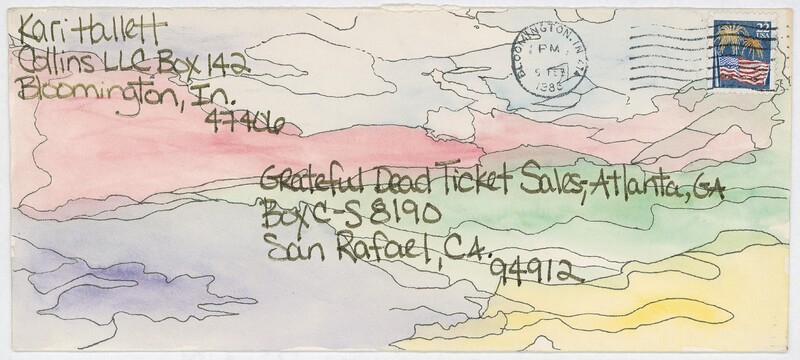 Kari Hallett
Collins LLC Box 142
Bloomington, In.
47406
BLOOMINGTON, IN
PM
5 FEB
22
USA
Grateful Dead Ticket Sales, Atlanta, GA
Box C-S 8190
San Rafael, CA.
94912